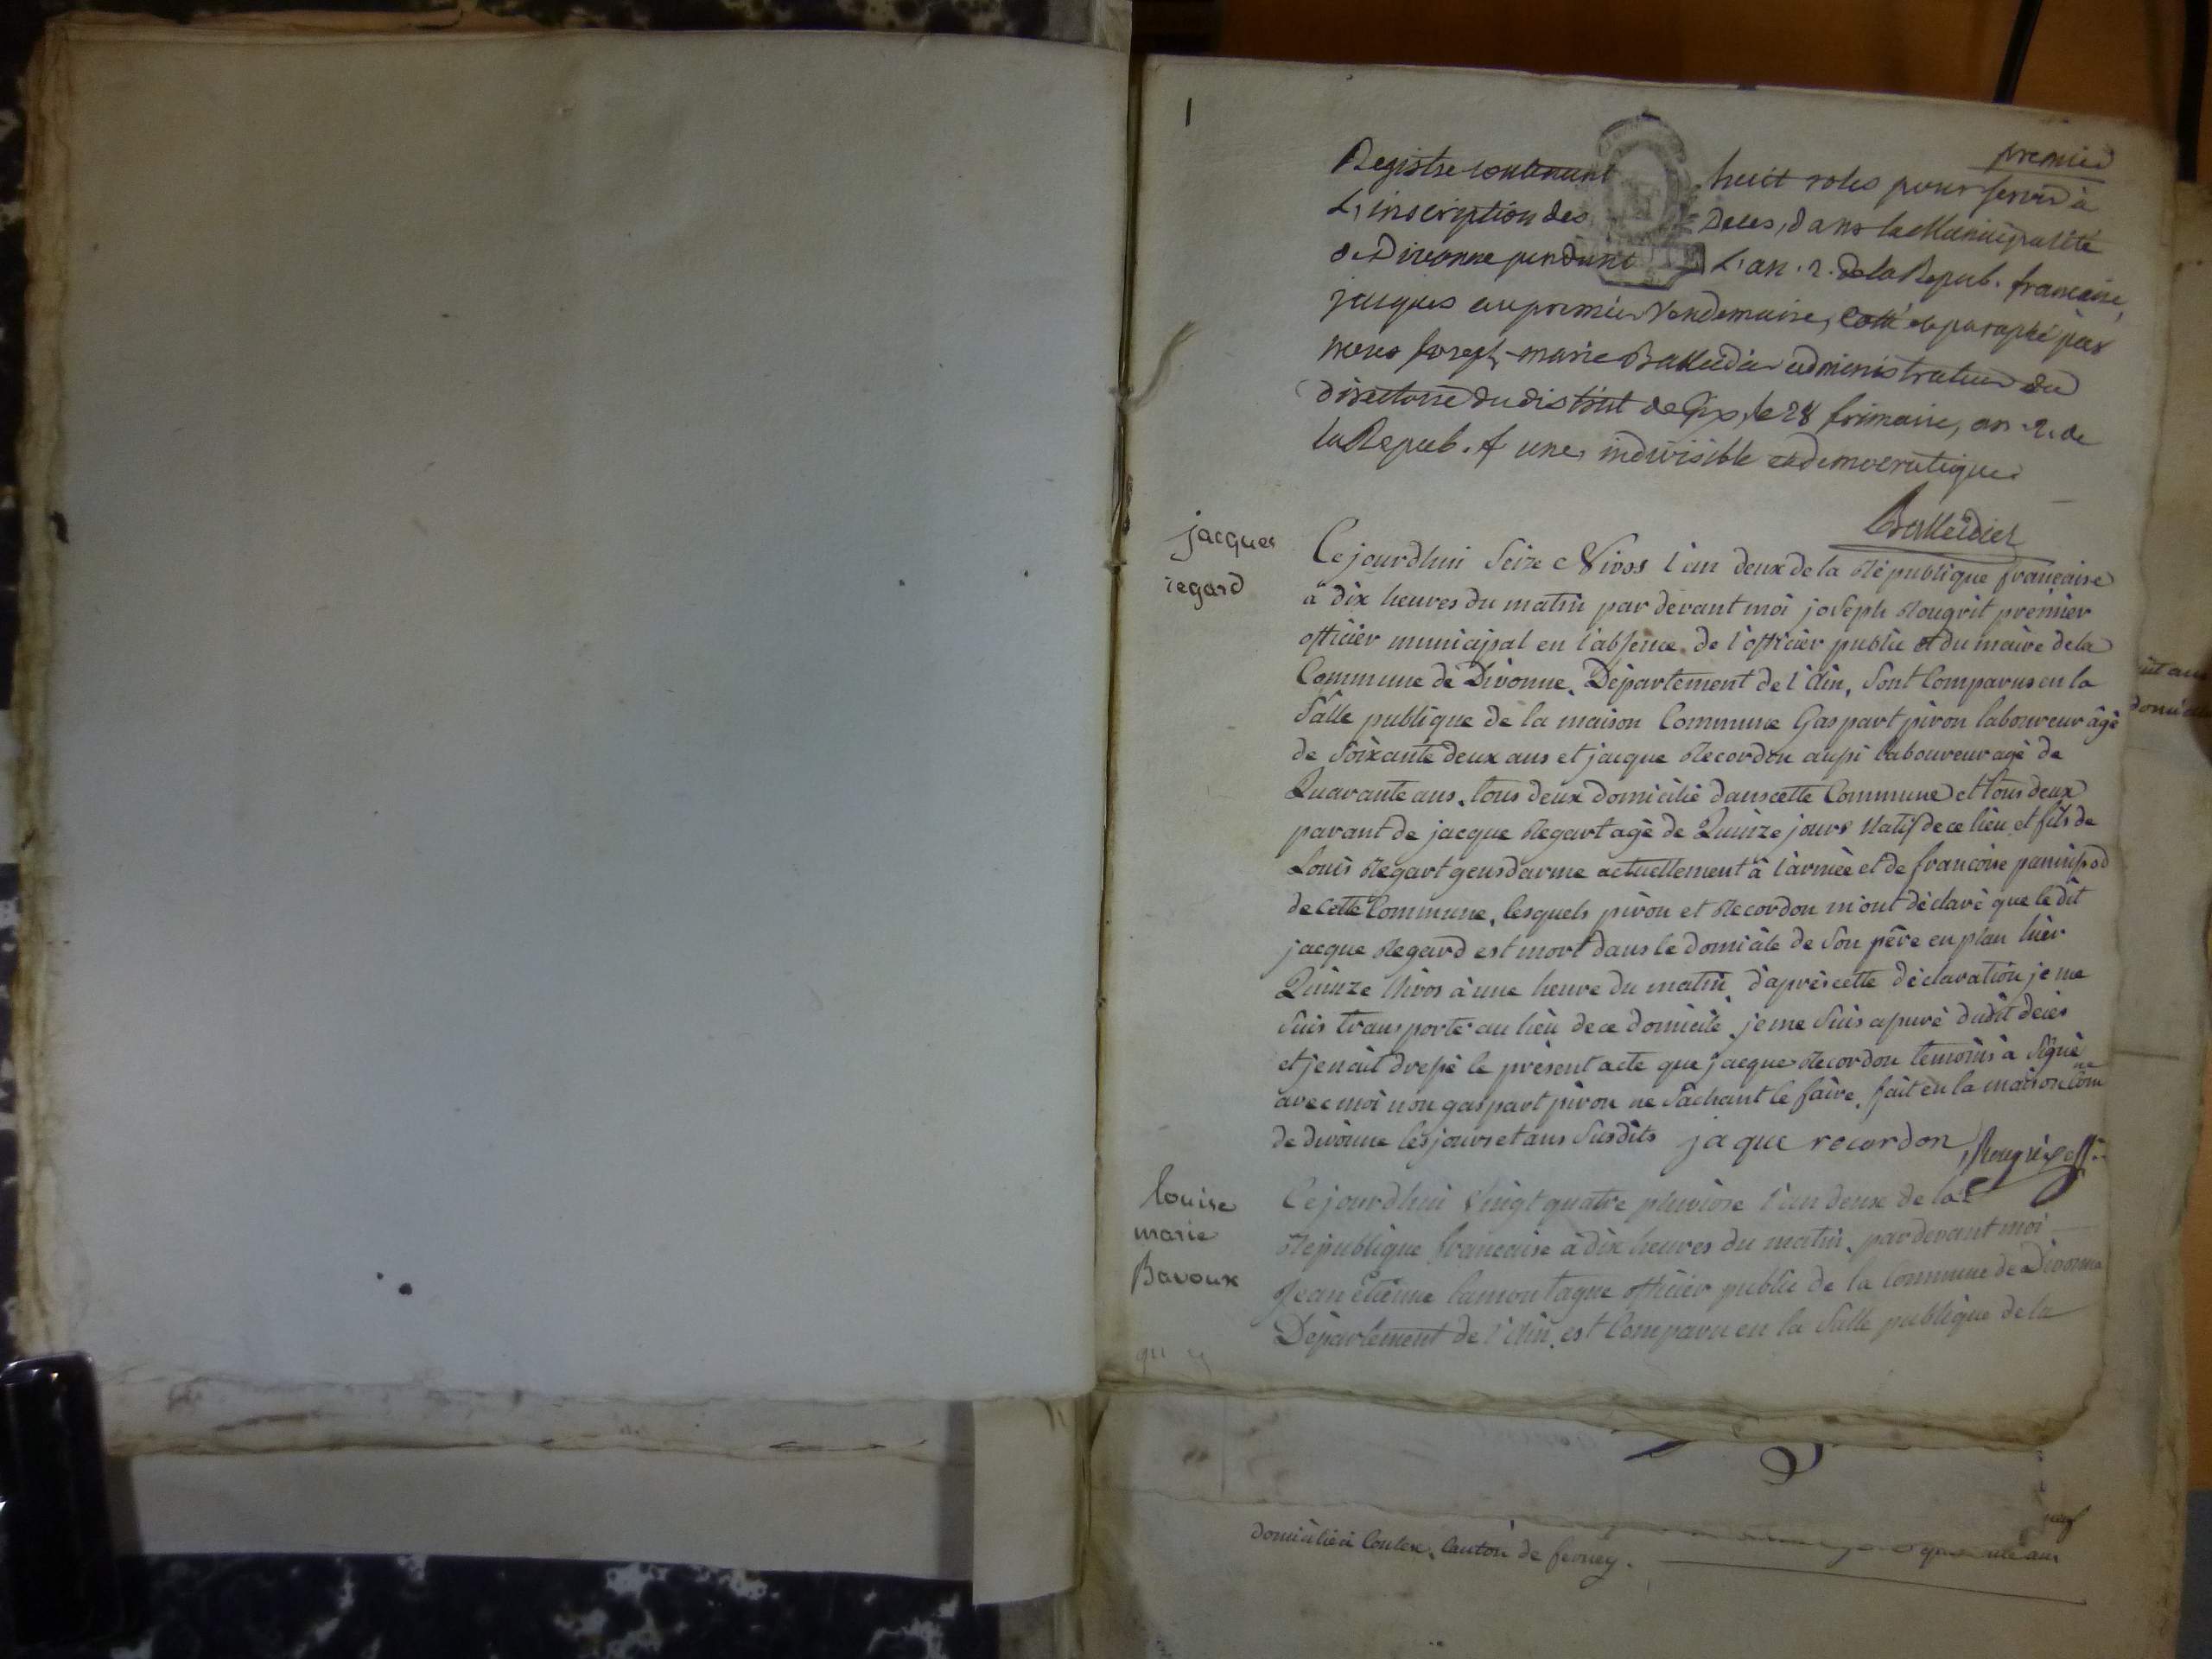 1
premier
Registre contenant huit roles pour servir à
L'inscription des Deces, dans la Municipalité
de Divonne pendant L'an .2. de la Repub. francaise,
jusques au premier Vendemaire, Cotté et paraphé par
nous Joseph-marie Balleidier administrateur du
directoire du district de Gex, le 28 frimaire, an .2. de
la Repub. f une, indivisible et democratique
Balleidier
jacques
regard
Cejourdhui Seize Nivos l'an deux de la République francaise
à dix heures du matin par devant moi joseph Rougrit premier
officier municipal en l'absence de l'officier public et du maire de la
Commune de Divonne, Département de l'Ain, Sont Comparus en la
Salle publique de la maison Commune Gaspart piron laboureur âgé
de Soixante deux ans et jacque Recordon aussi laboureur agé de
Quarante ans, tous deux domicilié dans cette Commune et tous deux
parant de jacque Regart agé de Quinze jours Natif de ce lieu et fils de
Louis Regart gensdarme actuellement à l'armée et de francoise
de cette Commune, lesquels piron et Recordon m'ont déclaré que le dit
jacque Regard est mort dans le domicile de Son père en plan hier
Quinze Nivos à une heure du matin d'après cette déclaration je me
Suis transporté au lieu de ce domicile, je me Suis apuré dudit decès
et jen ait dressé le présent acte que jacque Recordon temoins à Signé
avec moi non gaspart piron ne Sachant le faire, fait en la maison Comne
de divonne les jours et ans Susdits jaque recordon
louise
marie
Bavoux
Cejourdhui Vingt quatre pluviose l'an deux de la
République francaise à dix heures du matin, par devant moi
Jean Etienne lamontagne officier public de la Commune de Divonne
Département de l'Ain, est Comparu en la Salle publique de la
domicilié à Contex, Canton de ferney.